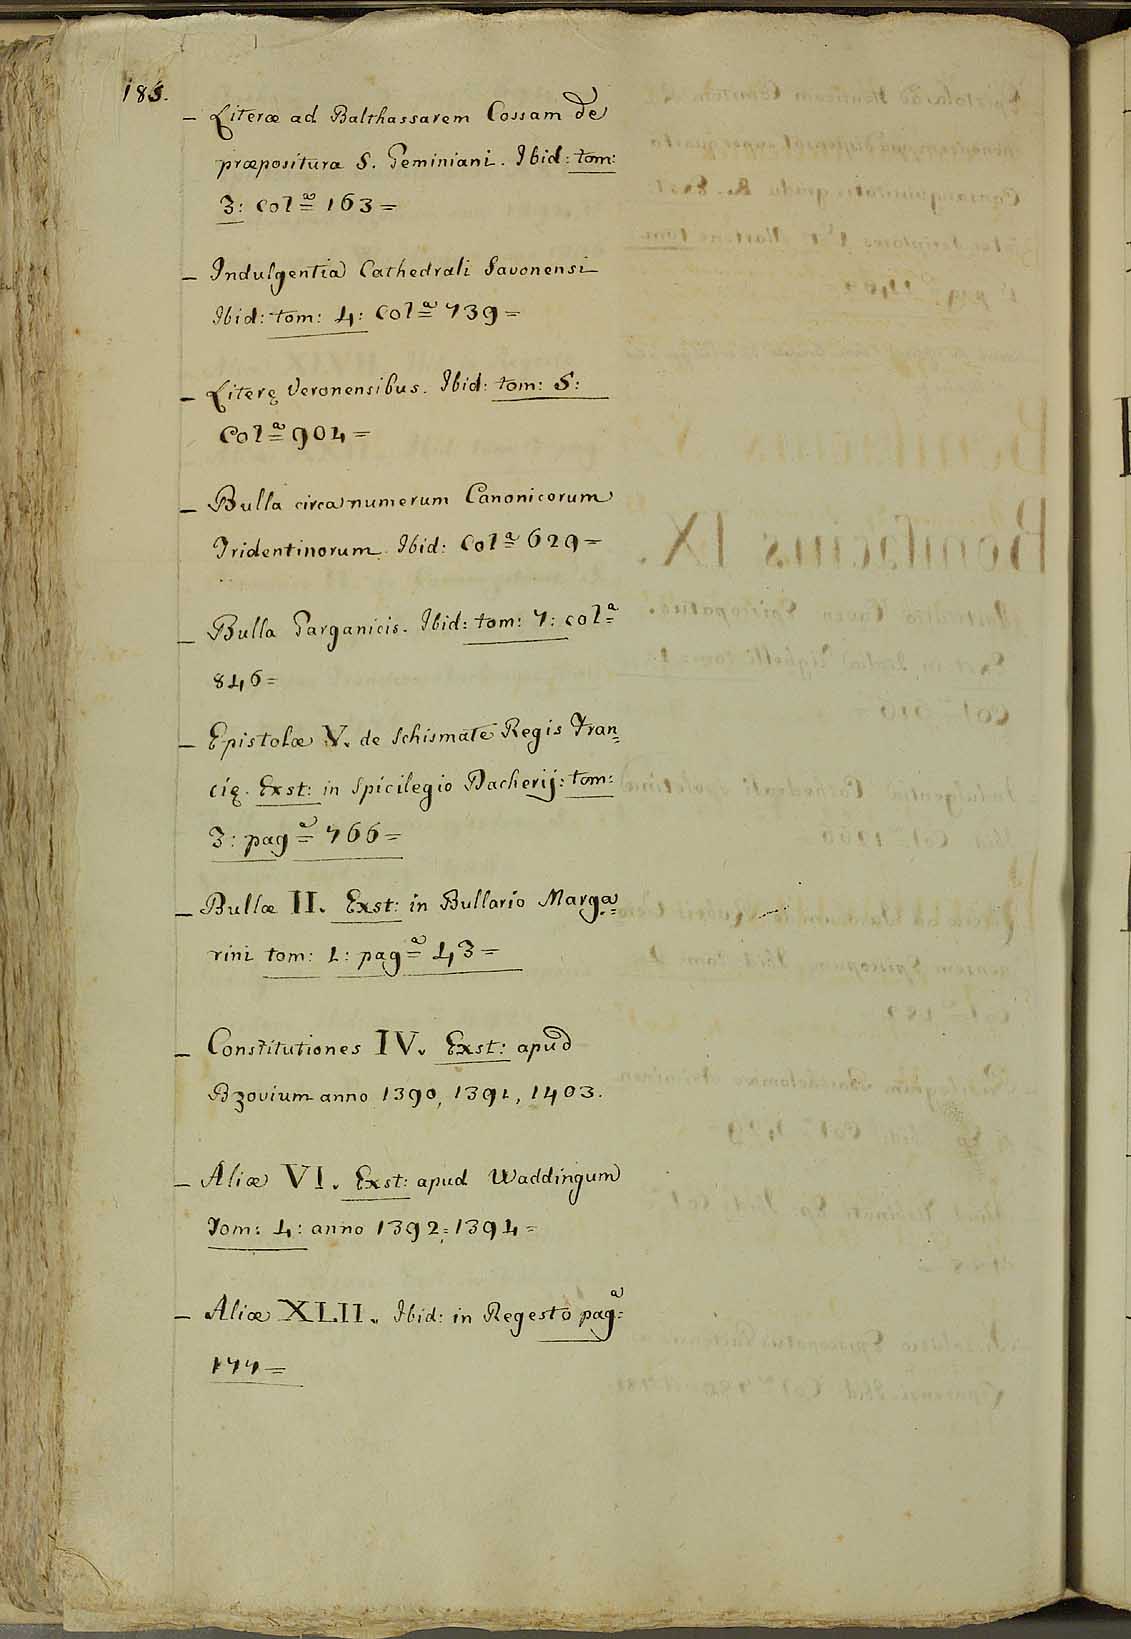 185.
– Literæ ad Balthassarem Cossam de
præpositura S. Geminiani. Ibid: tom:
3: colª 163=
– Indulgentia Cathedrali Savonensi
Ibid: tom: 4: colª 739=
– Literę Veronensibus. Ibid: tom: 5:
Colª 904=
– Bulla circa numerum Canonicorum
Tridentinorum. Ibid: Colª 629=
– Bulla Garganicis. Ibid: tom: 7: colª
846=
– Epistolæ V. de Schismate Regis Fran=
cię. Exst: in Spicilegio Dacherij: tom:
3: pagª 766=
– Bullæ II. Exst: in Bullario Marga=
rini tom: 1: pagª 43=
– Constitutiones IV. Exst: apud
Bzovium anno 1390, 1391, 1403.
– Aliæ VI. Exst: apud Waddingum
Tom: 4: anno 1392=1394=
– Aliæ XLII. Ibid: in Regesto pagª:
177=